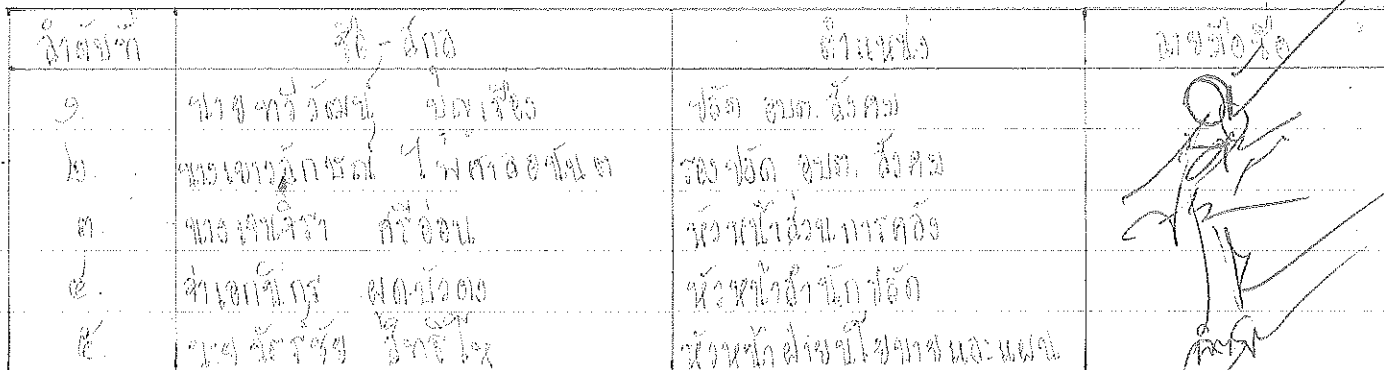 ลำดับที่ ชื่อ-สกุล ตำแหน่ง ลายมือชื่อ
๑. นายทวีวัฒน์ บุญเรือง ปลัด อบต. สังคม
๒. นางเยาวลักษณ์ รองปลัด อบต. สังคม
๓. นางเจนจิรา ศรีอ่อน หัวหน้าส่วนการคลัง
๔. จ่าเอก หัวหน้าสำนักปลัด
๕. นายฉัตรชัย สิทธิโห หัวหน้าฝ่ายนโยบายและแผน